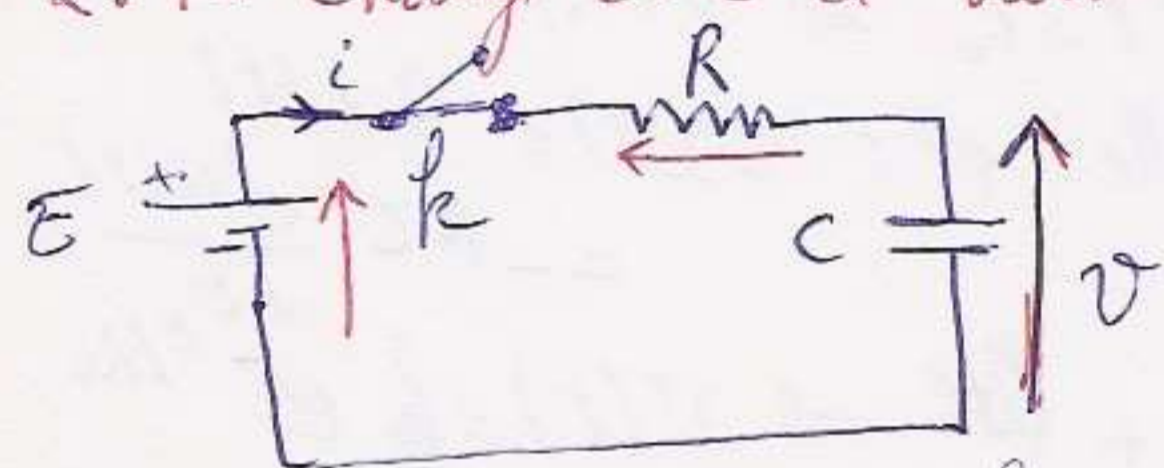 i
R
E
+
k
C
v
-